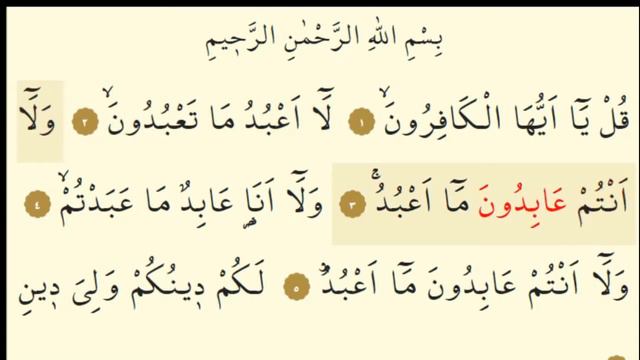 بِسْمِ اللهِ الرَّحْمٰنِ الرَّحٖيمِ
قُلْ يَٓا اَيُّهَا الْكَافِرُونَۙ ١ لَٓا اَعْبُدُ مَا تَعْبُدُونَۙ ٢ وَلَٓا
اَنْتُمْ عَابِدُونَ مَٓا اَعْبُدُۚ ٣ وَلَٓا اَنَا۬ عَابِدٌ مَا عَبَدْتُمْۙ ٤
وَلَٓا اَنْتُمْ عَابِدُونَ مَٓا اَعْبُدُۜ ٥ لَكُمْ دٖينُكُمْ وَلِيَ دٖينِ